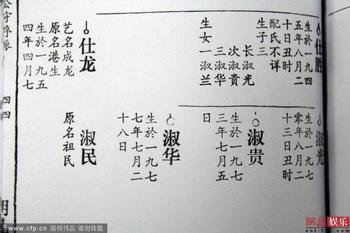 仕胜
生於一九四
五年八月二
十日丑时
配氏不详
生子三
长淑光
次淑贵
三淑华
生女一淑兰
淑光
生於一九七
零年八月二
十三日丑时
淑贵
生於一九七
三年七月五
日
淑华
生於一九七
七年七月二
十八日
仕龙
艺名成龙
原名港生
生於一九五
四年四月七
淑民
原名祖民
四四
明
www.cfp.cn 版权作品 请勿转载
娱乐